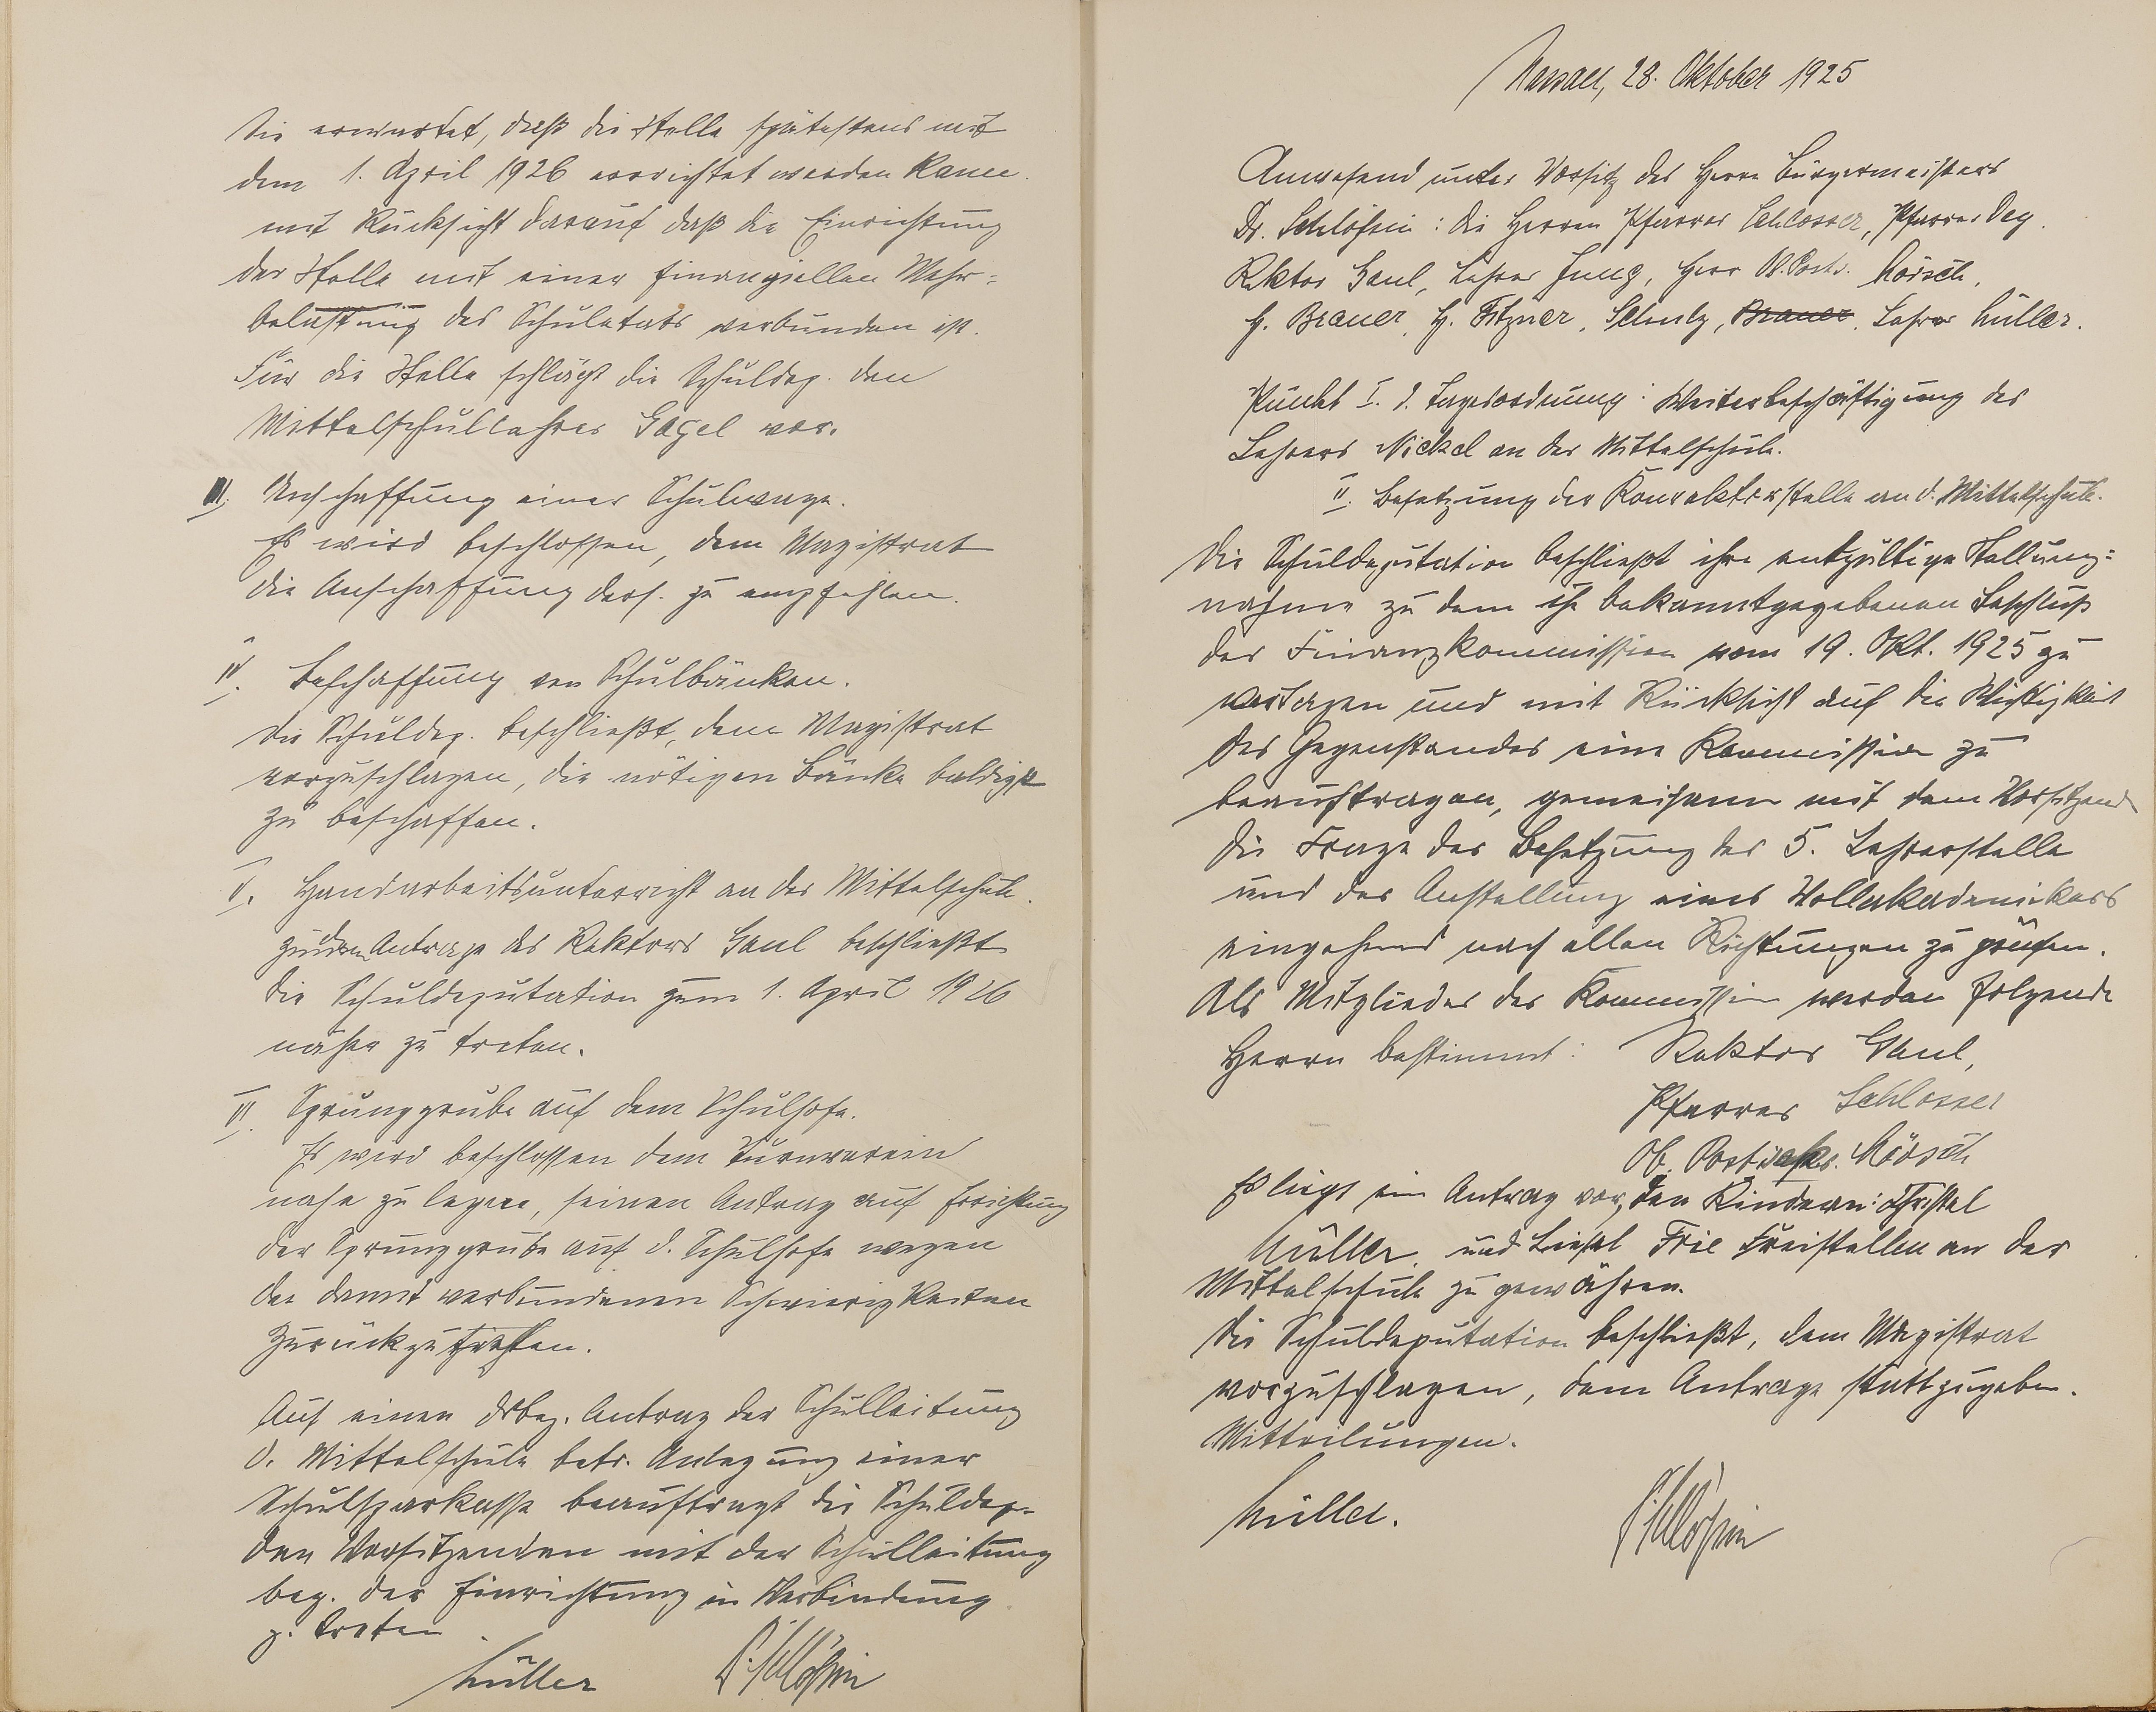 Sie erwartet, daß die Stelle spätestens mit
dem 1. April 1926 errichtet werden kann.
mit Rücksicht darauf daß die Einrichtung
der Stelle mit einer finanziellen Mehr=
belastung des Schuletats verbunden ist.
Für die Stelle schlägt die Schuldep. den
Mittelschullehrer Gagel vor.
III. Anschaffung einer Schulwage.
Es wird beschlossen, dem Magistrat
die Anschaffung ders. zu empfehlen.
IV. Beschaffung von Schulbänken.
Die Schuldep. beschließt, dem Magistrat
vorzuschlagen, die nötigen Bänke baldigst
zu beschaffen.
V. Handarbeitsunterricht an der Mittelschule.
Zu dem Antrage des Rektors Gaul beschließt
die Schuldeputation zum 1. April 1926
näher zu treten.
VI. Sprunggrube auf dem Schulhofe.
Es wird beschlossen dem Turnverein
nahe zu legen, seinen Antrag auf Errichtung
der Sprunggrube auf d. Schulhofe wegen
der damit verbundenen Schwierigkeiten
zurückzuziehen.
Auf einen dsbez. Antrag der Schulleitung
d. Mittelschule betr. Anlegung einer
Schulsparkasse beauftragt die Schuldep.
den Vorsitzenden mit der Schulleitung
bez. der Einrichtung in Verbindung
z. treten.
Müller Dr. Schlössin
Nassau, 28. Oktober 1925
Anwesend unter Vorsitz des Herrn Bürgermeisters
Dr. Schlössin: die Herren Pfarrer Schlosser, Pfarrer Dey.
Rektor Gaul, Lehrer Jung, Herr Ob. Posts. Mörsch,
H. Brauer, H. Fitzner, Schulz, Brauer, Lehrer Müller.
Punkt I. d. Tagesordnung: Weiterbeschäftigung des
Lehrers Nickel an der Mittelschule.
II. Besetzung der Konrektorstelle an d. Mittelschule.
Die Schuldeputation beschließt ihre entgültige Stellung=
nahme zu dem ihr bekanntgegebenen Beschluß
der Finanzkommission vom 19. Okt. 1925 zu
vertagen und mit Rücksicht auf die Wichtigkeit
des Gegenstandes eine Kommission zu
beauftragen, gemeinsam mit dem Vorsitzend
die Frage der Besetzung der 5. Lehrerstelle
und der Anstellung eines Vollakademikers
eingehend nach allen Richtungen zu prüfen.
Als Mitglieder der Kommission werden folgende
Herrn bestimmt: Rektor Gaul,
Pfarrer Schlosser
Ob. Postsekr. Mörsch
Es liegt ein Antrag vor, den Kindern: Christel
Müller und Liesel Frie Freistellen an der
Mittelschule zu gewähren.
Die Schuldeputation beschließt, dem Magistrat
vorzuschlagen, dem Antrage stattzugeben.
Mitteilungen.
Müller. Schlössin